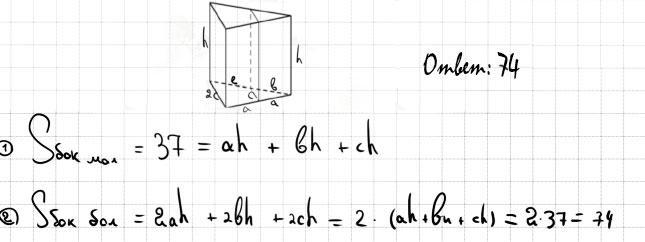 h
h
в
в
2c
c
a
a
Ответ: 74
① Sбок мал = 37 = ah + bh + ch
② Sбок бол = 2ah + 2bh + 2ch = 2 · (ah + bh + ch) = 2·37 = 74